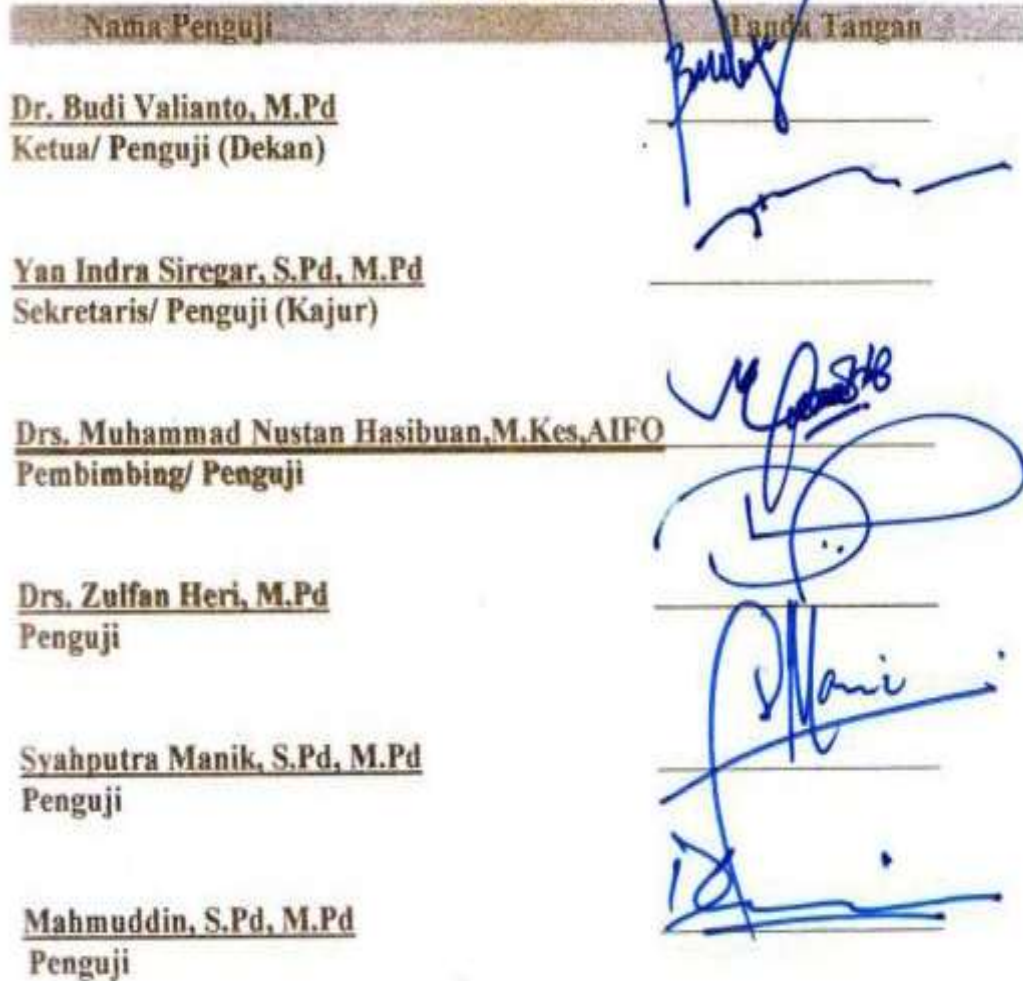 Nama Penguji Tanda Tangan
Dr. Budi Valianto, M.Pd
Ketua/ Penguji (Dekan)
Yan Indra Siregar, S.Pd, M.Pd
Sekretaris/ Penguji (Kajur)
Drs. Muhammad Nustan Hasibuan,M.Kes,AIFO
Pembimbing/ Penguji
Drs. Zulfan Heri, M.Pd
Penguji
Syahputra Manik, S.Pd, M.Pd
Penguji
Mahmuddin, S.Pd, M.Pd
Penguji